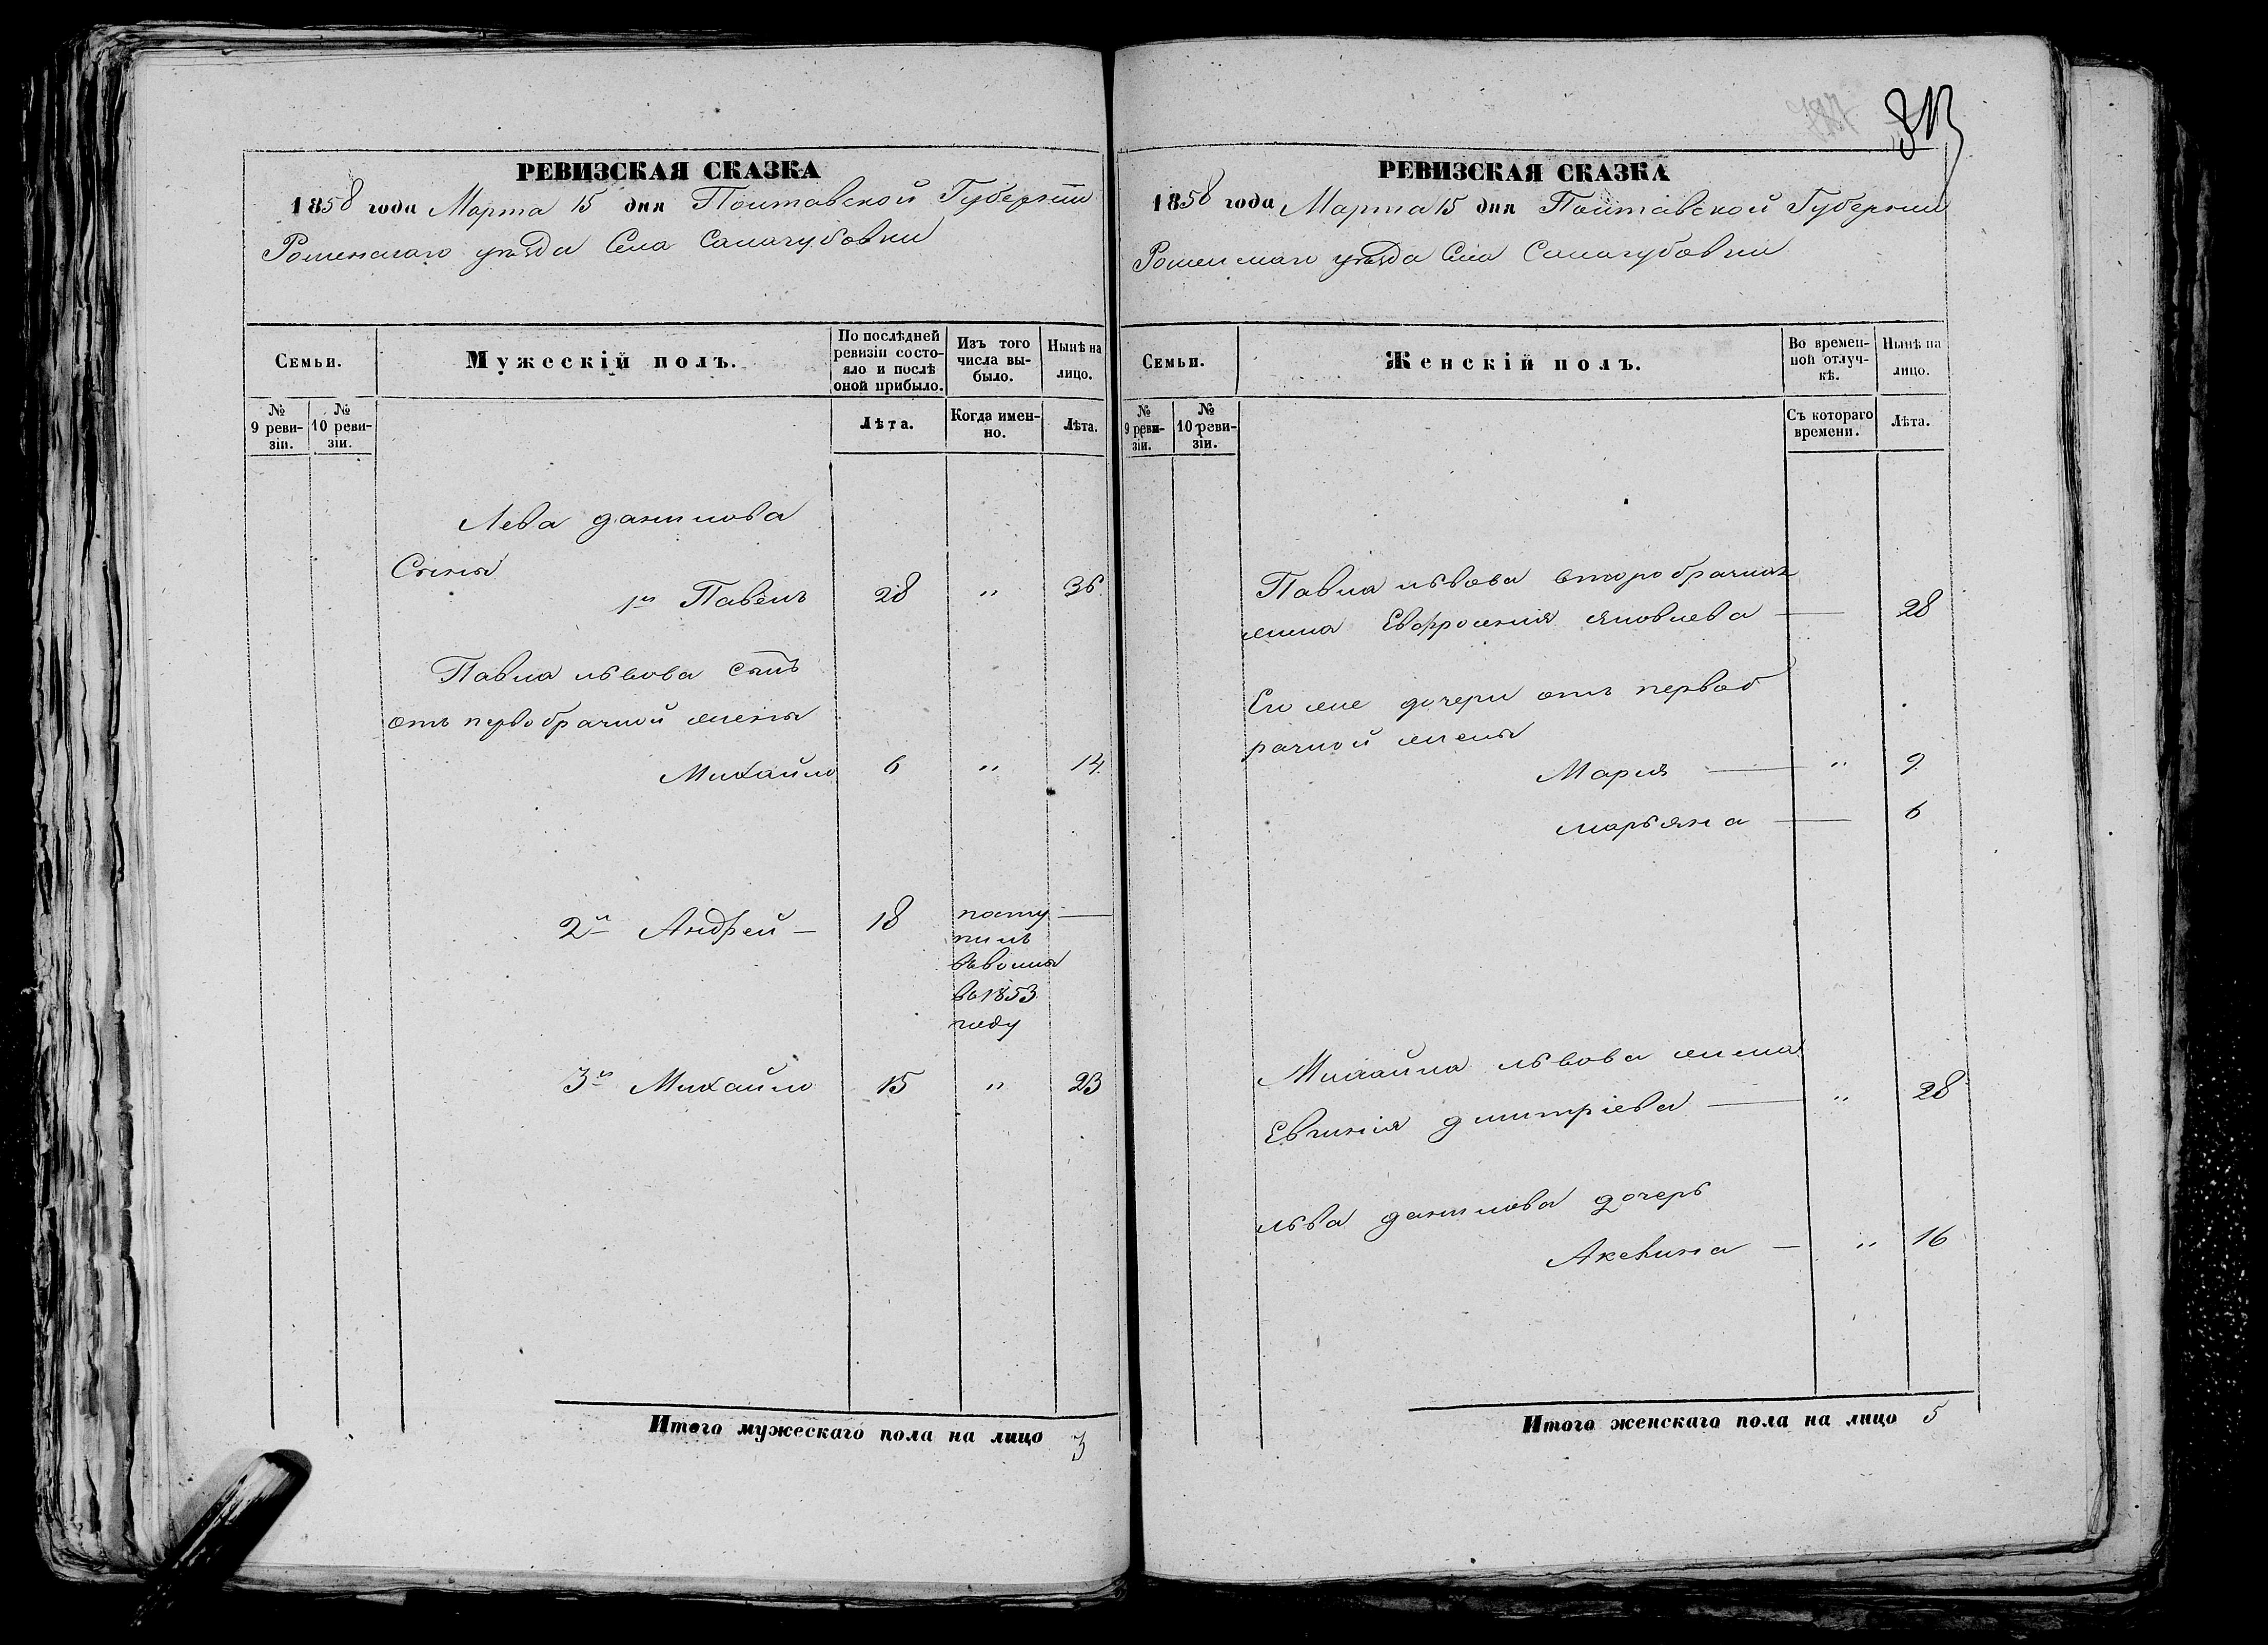 РЕВИЗСКАЯ СКАЗКА
1858 года Марта 15 дня Полтавской Губерніи
Роменскаго уѣзда Села Салогубовки
Семьи.
Мужескій полъ.
По послѣдней ревизіи состояло и послѣ оной прибыло.
Изъ того числа выбыло.
Нынѣ на лицо.
№ 9 ревизіи.
№ 10 ревизіи.
Лѣта.
Когда именно.
Лѣта.
Лева данилова
Сыны
1й Павелъ 28 " 36
Павла львова сынъ
отъ первобрачной жены
Михайло 6 " 14
2й Андрей — 18 посту —
пилъ
въ
во 1853
году
3й Михайло 15 " 23
Итого мужескаго пола на лицо 3
813
РЕВИЗСКАЯ СКАЗКА
1858 года Марта 15 дня Полтавской Губерніи
Роменскаго уѣзда Села Салогубовки
Семьи.
Женскій полъ.
Во временной отлучкѣ.
Нынѣ на лицо.
№ 9 ревизіи.
№ 10 ревизіи.
Съ котораго времени.
Лѣта.
Павла львова второбрачная
жена Евфросинія яковлева — 28
Его же дочери отъ первоб
рачной жены
Марія — " 9
марьяна — 6
Михайла львова жена
Евгинія дмитріева — " 28
льва данилова дочерь
Аксинія — " 16
Итого женскаго пола на лицо 5